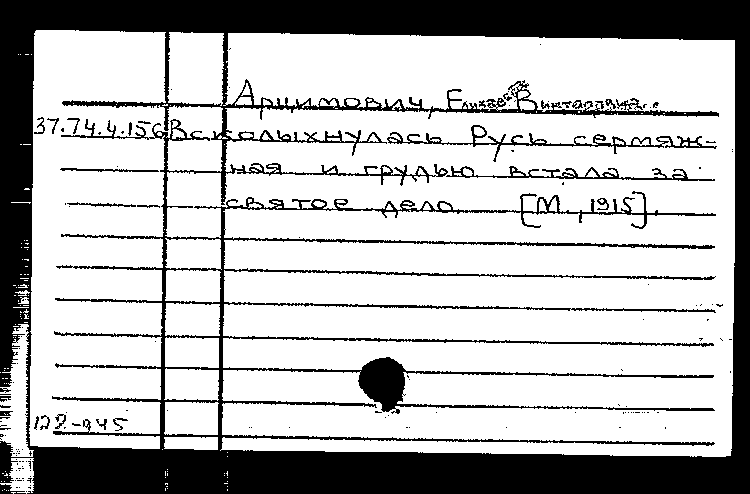 Арцимович, Елизавета Викторовна.
37.74.4.156 Всколыхнулась Русь сермяж-
ная и грудью встала за
святое дело [М., 1915].
122-945